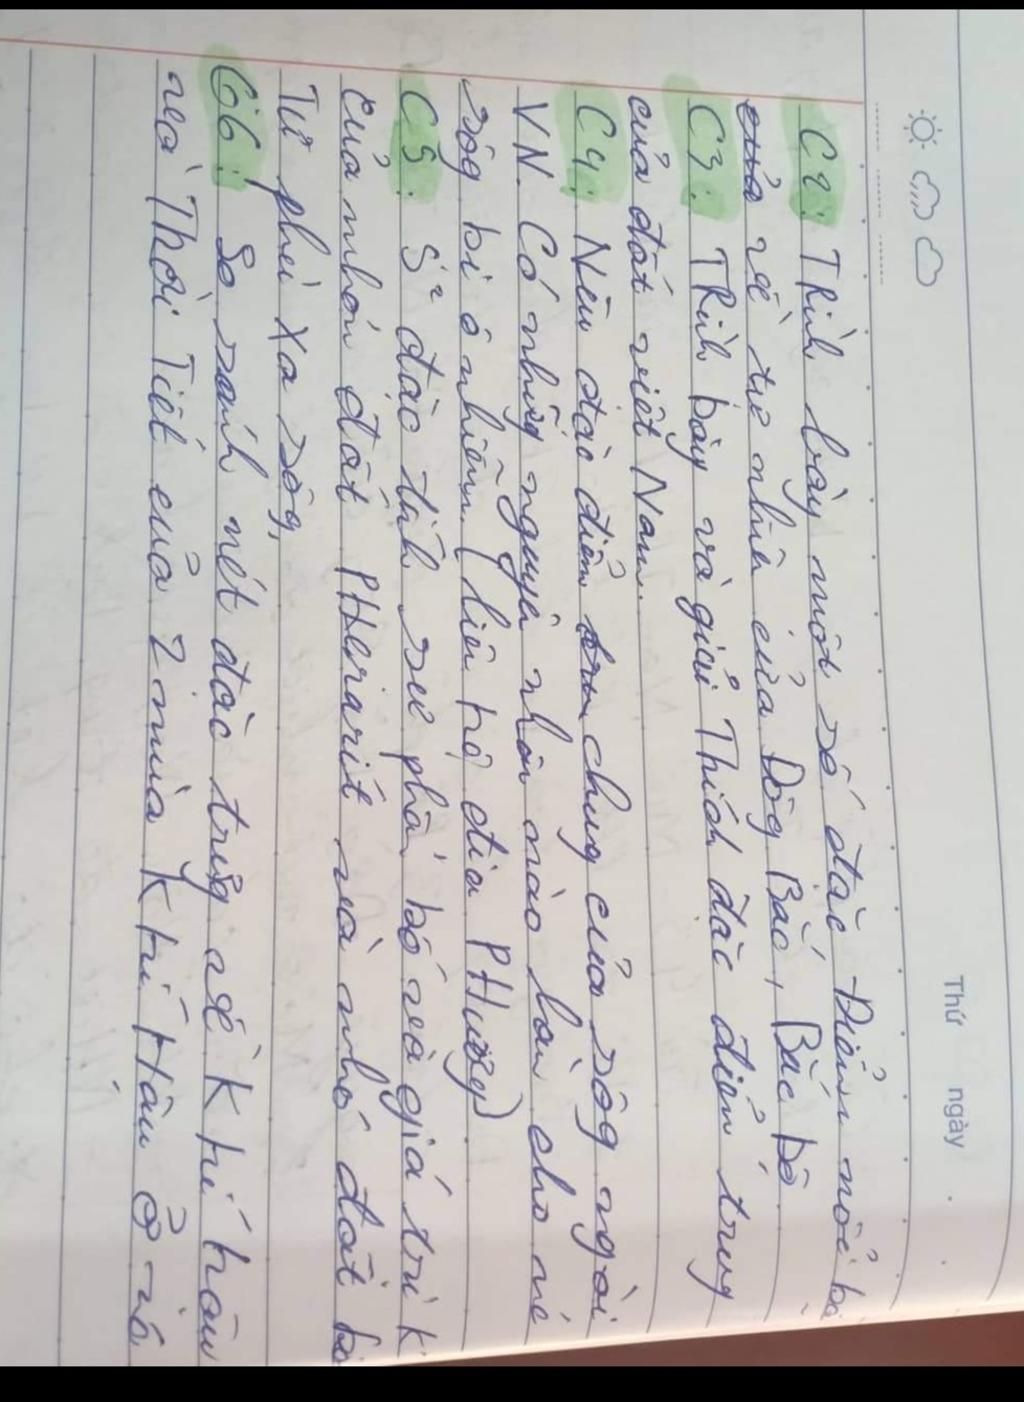 Thứ ngày
C2: TRình bày một số đặc Điểm nổi bậ
về tự nhiên của Đông Bắc, Bắc bộ
C3: TRình bày và giải Thích đặc điểm trung
của đất việt Nam.
C4: Nêu đặc điểm chung của sông ngòi
VN. Có những nguyên nhân nào làm cho
sông bị ô nhiễm. (liên hệ địa PHương)
C5: S² đặc tính sự phân bố và giá trị K
của nhóm đất PHerarit và nhó đất
Từ phù xa sông
C6: So sánh nét đặc trưng về K hí hậu
và Thời Tiết của 2 mùa K hí Hậu ở